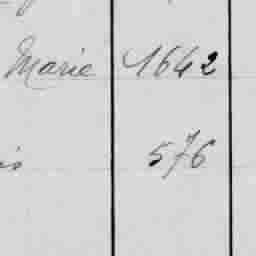 Marie 1642
is 576